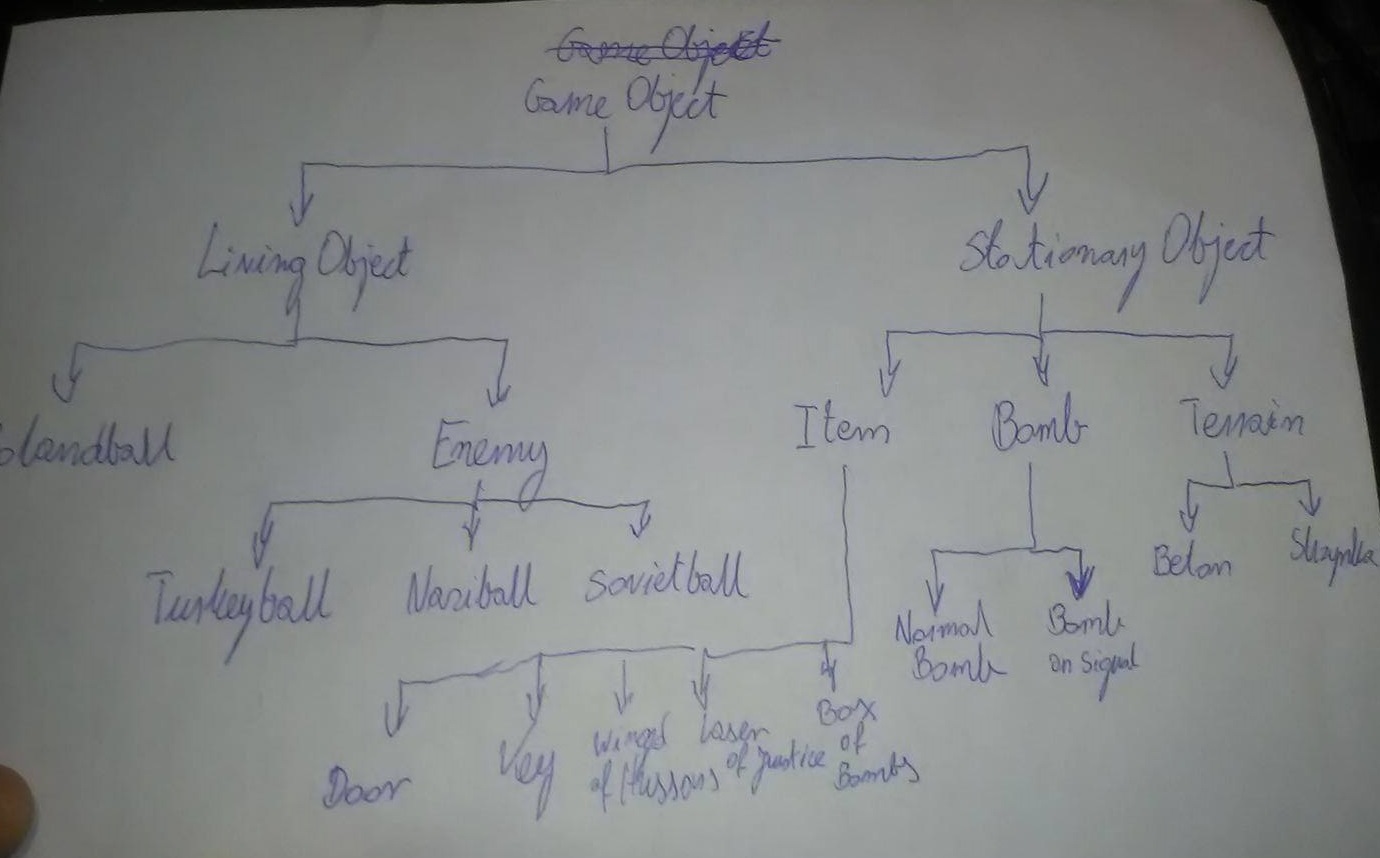 Game Object
Game Object
Living Object
Stationary Object
olandball
Enemy
Item
Bomb
Terrain
Turkeyball
Naziball
Sovietball
Normal
Bomb
Bomb
on Signal
Beton
Skrzynka
Door
Key
Winged
of Hussars
Laser
of Justice
Box
of
Bombs